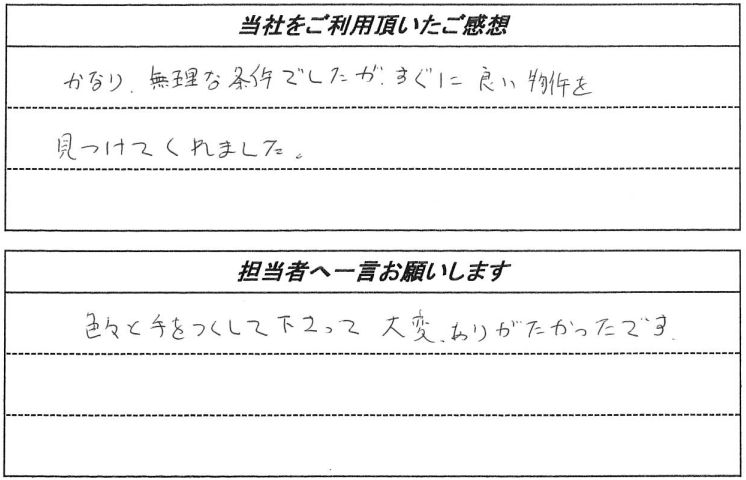 当社をご利用頂いたご感想
かなり、無理な条件でしたが、すぐに良い物件を
見つけてくれました。
担当者へ一言お願いします
色々と手をつくして下さって大変、ありがたかったです。